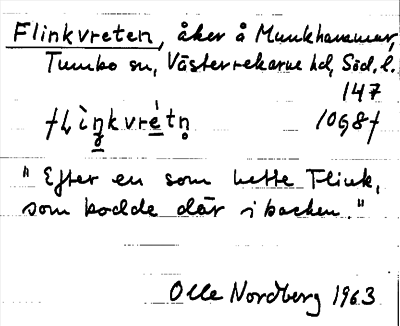 Flinkvreten, åker å Munkhammar,
Tumbo sn, Västerrekarne hd, Söd. l.
147
1068f
"Efter en som hette Flink,
som bodde där i backen."
Olle Nordberg 1963